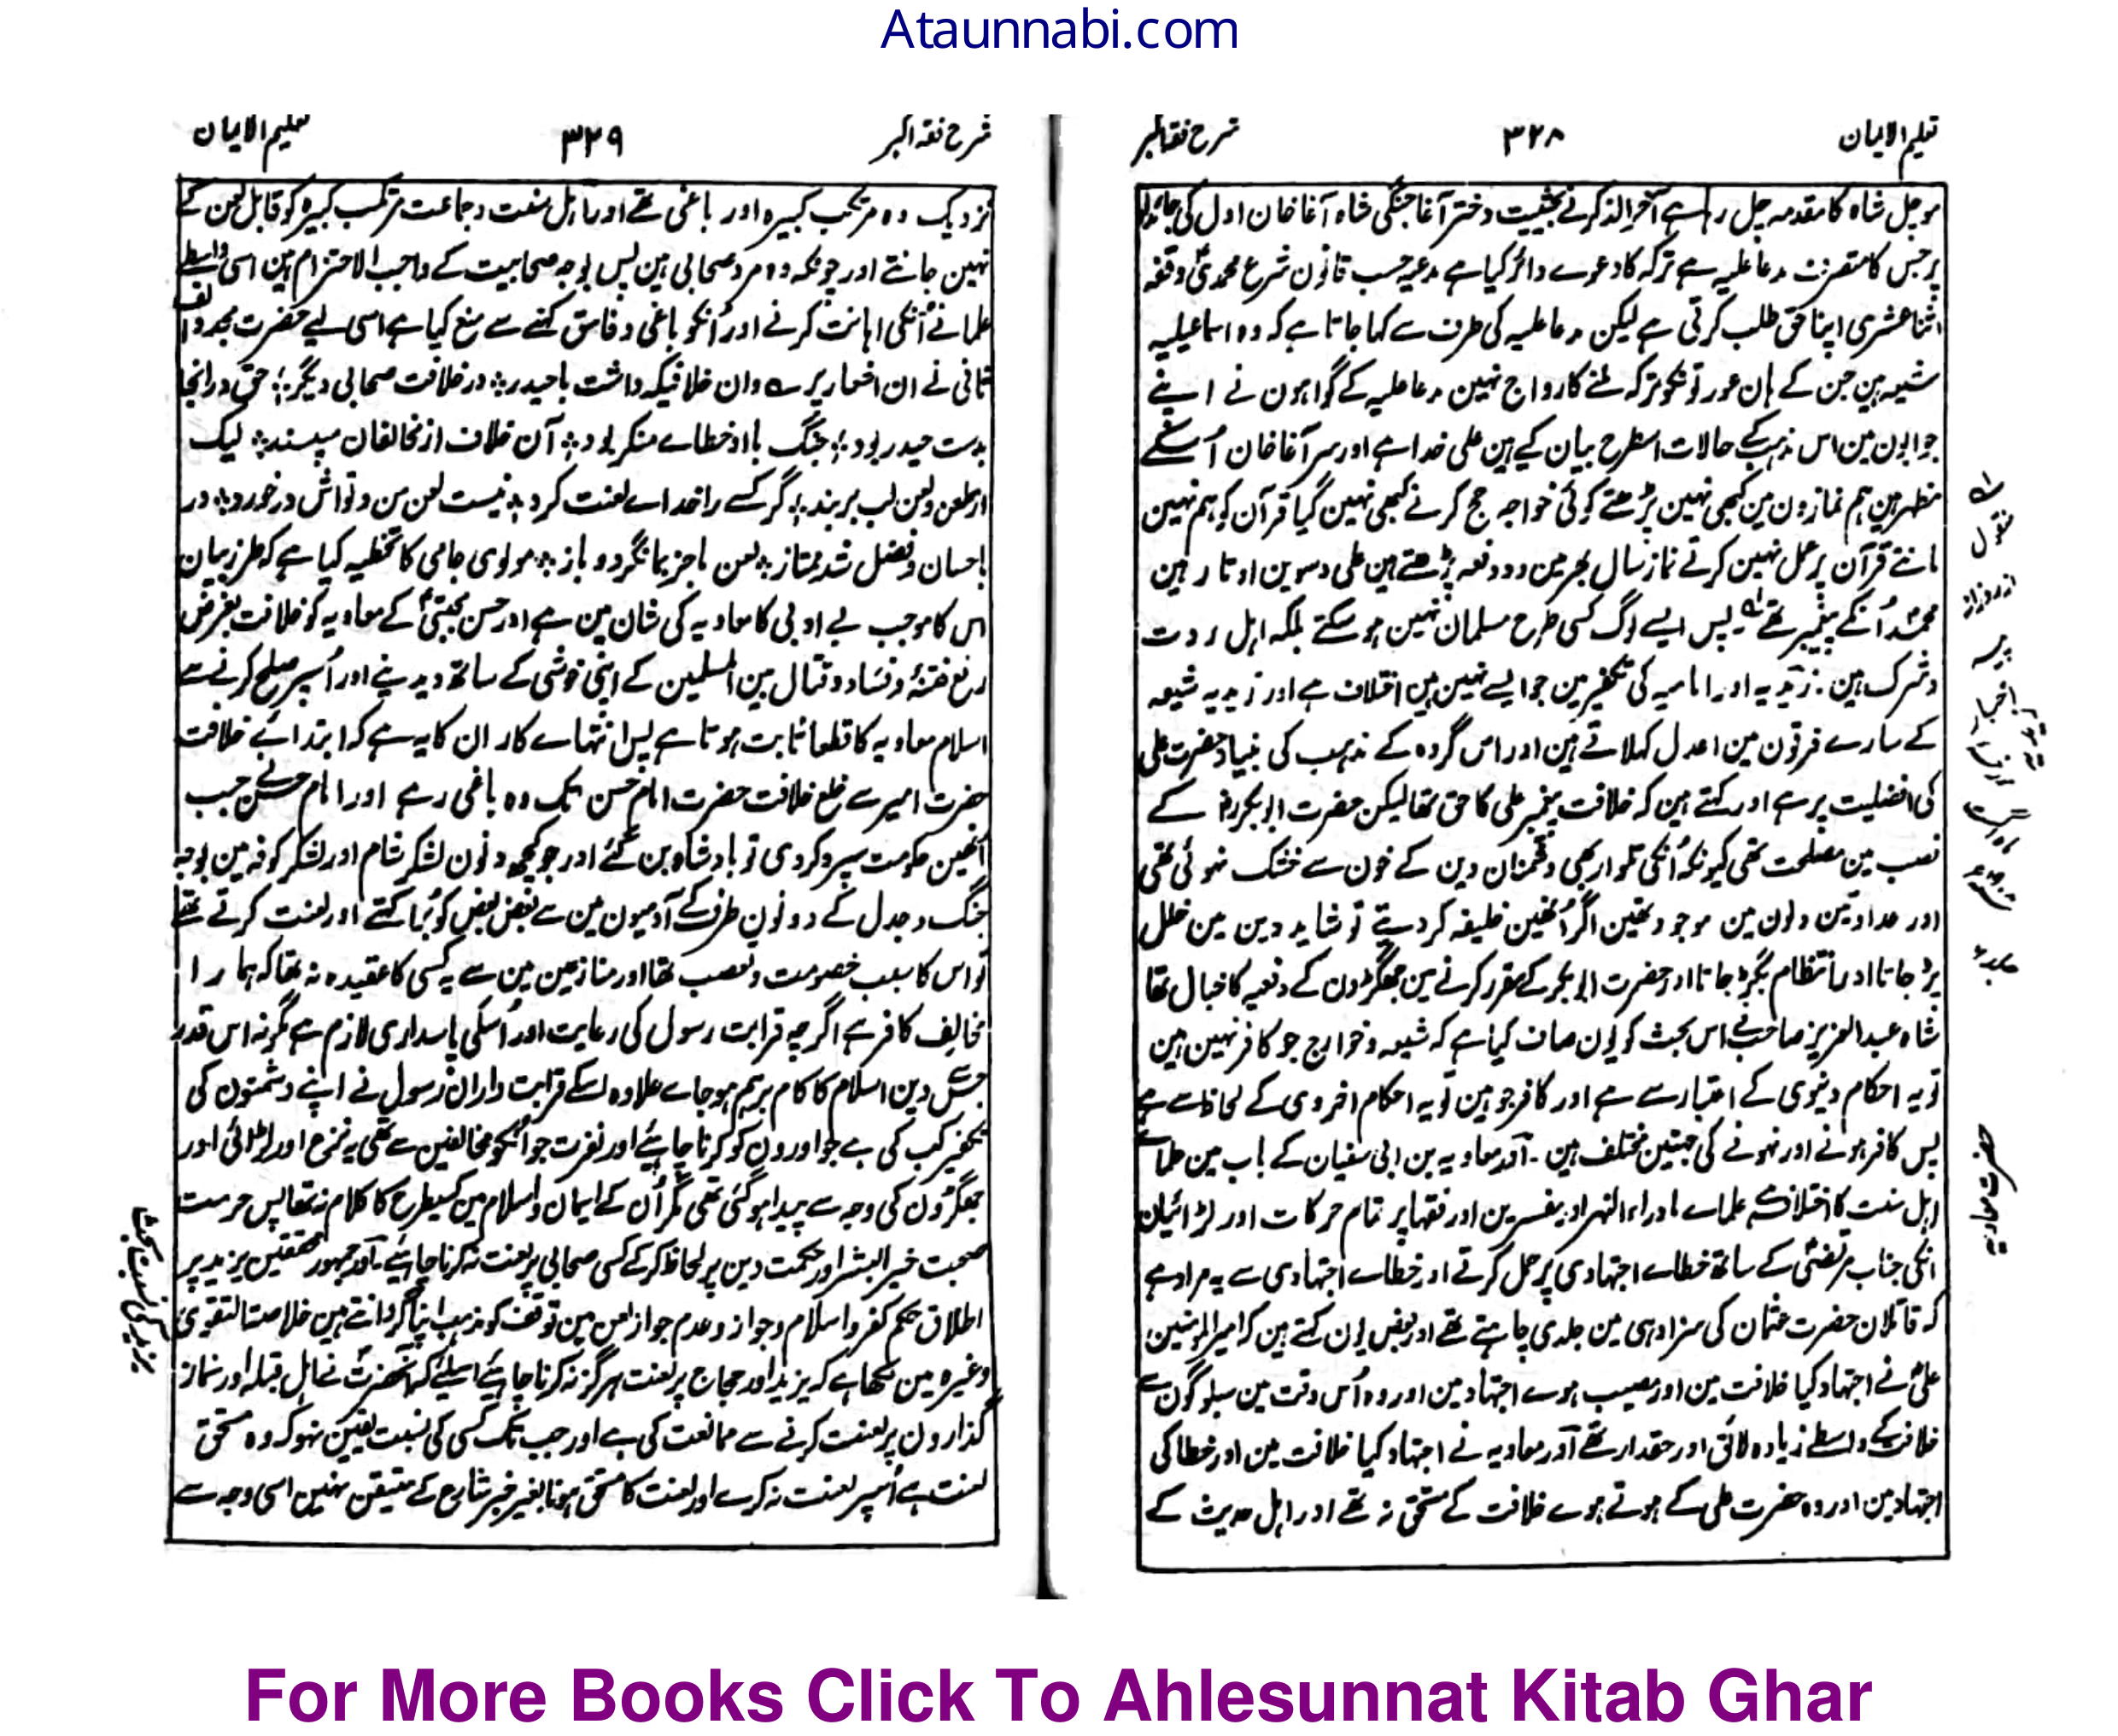 Ataunnabi.com
تعلیم الایمان
۳۲۸
شرح فقہ اکبر
موچل شاہ کا مقدمہ چل رہا ہے آخر الذکر نے بحیثیت دختر آغا جنگی شاہ آغا خان اول کی جائداد
پر جس کا متصرف مدعا علیہ ہے ترکہ کا دعوے دائر کیا ہے مدعیہ حسب قانون شرع محمدی وقفہ
اثنا عشری اپنا حق طلب کرتی ہے لیکن مدعا علیہ کی طرف سے کہا جاتا ہے کہ وہ اسماعیلیہ
شیعہ ہین جن کے ہان عورتونکو ترکہ ملنے کا رواج نہین مدعا علیہ کے گواہون نے اپنے
جوابون مین اس مذہب کے حالات اسطرح بیان کیے ہین علی خدا ہے اور سر آغا خان اُسکے
مظہر ہین ہم نمازون مین کبھی نہین پڑھتے کوئی خواجہ حج کرنے کبھی نہین گیا قرآن کو ہم نہین
مانتے قرآن پر عمل نہین کرتے نماز سال بھر مین دو دفعہ پڑھتے ہین علی دسوین اوتار ہین
محمدؐ اُنکے پیغمبر تھے پس ایسے لوگ کسی طرح مسلمان نہین ہو سکتے بلکہ اہل ردت
و شرک ہین۔ زیدیہ اور امامیہ کی تکفیر مین جو ایسے نہین ہین اختلاف ہے اور زیدیہ شیعہ
کے سارے فرقون مین اعدل کہلاتے ہین اور اس گروہ کے مذہب کی بنیاد حضرت علی
کی افضلیت پر ہے اور کہتے ہین کہ خلافت پیغمبر علی کا حق تھا لیکن حضرت ابوبکرؓ کے
نصب مین مصلحت تھی کیونکہ اُنکی تلوار بھی دشمنان دین کے خون سے خشک نہوئی تھی
اور عداوتین دلون مین موجود تھین اگر اُنھین خلیفہ کر دیتے تو شاید دین مین خلل
پڑ جاتا اور انتظام بگڑ جاتا اور حضرت ابوبکر کے مقرر کرنے مین جھگڑون کے دفعیہ کا خیال تھا
شاہ عبد العزیز صاحب نے اس بحث کو یون صاف کیا ہے کہ شیعہ و خوارج جو کافر نہین ہین
تو یہ احکام دنیوی کے اعتبار سے ہے اور کافر جو ہین تو یہ احکام اخروی کے لحاظ سے ہے
پس کافر ہونے اور نہونے کی جہتین مختلف ہین۔ اور معاویہ بن ابی سفیان کے باب مین علماے
اہل سنت کا اختلاف ہے علماے ماوراء النہر اور مفسرین اور فقہا پر تمام حرکات اور لڑائیان
انکی جناب مرتضیٰ کے ساتھ خطاے اجتہادی پر حمل کرتے اور خطاے اجتہادی سے یہ مراد ہے
کہ قاتلان حضرت عثمان کی سزا دہی مین جلدی چاہتے تھے اور بعض یون کہتے ہین کہ امیر المومنین
علیؓ نے اجتہاد کیا خلافت مین اور مصیب ہوے اجتہاد مین اور وہ اُس وقت مین سب لوگون سے
خلافت کے واسطے زیادہ لائق اور حقدار تھے اور معاویہ نے اجتہاد کیا خلافت مین اور خطا کی
اجتہاد مین اور وہ حضرت علی کے ہوتے ہوے خلافت کے مستحق نہ تھے اور اہل حدیث کے
منقول
از روزانہ
پیسہ
اخبار
حضرت معاویہ
شرح فقہ اکبر
۳۲۹
تعلیم الایمان
نزدیک وہ مرتکب کبیرہ اور باغی تھے اور اہل سنت و جماعت مرتکب کبیرہ کو قابل لعن کے
نہین جانتے اور چونکہ وہ مرد صحابی ہین پس بوجہ صحابیت کے واجب الاحترام ہین اسی واسطے
علما نے اُنکی اہانت کرنے اور اُنکو باغی و فاسق کہنے سے منع کیا ہے اسی لیے حضرت مجدد الف
ثانی نے ان اشعار پر ے وان خلافیکہ داشت با حیدر ؞ در خلافت صحابی دیگر ؞ حق در انجا
بدست حیدر بود ؞ جنگ با او خطاے منکر بود ؞ آن خلاف از مخالفان مپسند ؞ لیک
از طعن و لعن لب بربند ؞ گر کسے را خداے لعنت کرد ؞ نیست لعن من و تواش درخورد ؞ ور
باحسان و فضل شد ممتاز ؞ لعن ما جز بما نگردد باز ؞ مولوی جامی کا تخطیہ کیا ہے کہ طرز بیان
اس کا موجب بے ادبی کا معاویہ کی شان مین ہے اور حسن مجتبیٰ کے معاویہ کو خلافت بغرض
رفع فتنہ و فساد و قتال بین المسلمین کے اپنی خوشی کے ساتھ دیدینے اور اُسپر صلح کرنے سے
اسلام معاویہ کا قطعا ثابت ہوتا ہے پس انتہاے کار ان کا یہ ہے کہ ابتداے خلافت
حضرت امیر سے خلع خلافت حضرت امام حسن تک وہ باغی رہے اور امام حسن نے جب
اُنھین حکومت سپرد کر دی تو بادشاہ بن گئے اور جو کچھ دونون لشکر شام اور لشکر کوفہ مین بوجہ
جنگ و جدل کے دونون طرف کے آدمیون مین سے بعض بعض کو بُرا کہتے اور لعنت کرتے تھے
تو اس کا سبب خصومت و تعصب تھا اور منازعین مین سے یہ کسی کا عقیدہ نہ تھا کہ ہمارا
مخالف کافر ہے اگرچہ قرابت رسول کی رعایت اور اُسکی پاسداری لازم ہے مگر نہ اس قدر
جس سے دین اسلام کا کام برہم ہو جاے علاوہ اسکے قرابت داران رسول نے اپنے دشمنون کی
تکفیر کب کی ہے جو اورون کو کرنا چاہیے اور نفرت جو اُنکو مخالفین سے تھی یہ نزع اور لڑائی اور
جھگڑون کی وجہ سے پیدا ہو گئی تھی مگر اُن کے ایمان و اسلام مین کسیطرح کا کلام نہ تھا پس حرمت
صحبت خیر البشر اور حکمت دین پر لحاظ کر کے کسی صحابی پر لعنت نہ کرنا چاہیے۔ اور جمہور محققین یزید پر
اطلاق حکم کفر و اسلام و جواز و عدم جواز لعن مین توقف کو مذہب اپنا گردانتے ہین خلاصۃ الفتویٰ
وغیرہ مین لکھا ہے کہ یزید اور حجاج پر لعنت ہرگز نہ کرنا چاہیے اسلیے کہ آنحضرتؐ نے اہل قبلہ اور نماز
گذارون پر لعنت کرنے سے ممانعت کی ہے اور جب تک کسی کی نسبت یقین نہو کہ وہ مستحق
لعنت ہے اُسپر لعنت نہ کرے اور لعنت کا مستحق ہونا بغیر خبر شارع کے متیقن نہین اسی وجہ سے
یزید کی نسبت بحث
For More Books Click To Ahlesunnat Kitab Ghar